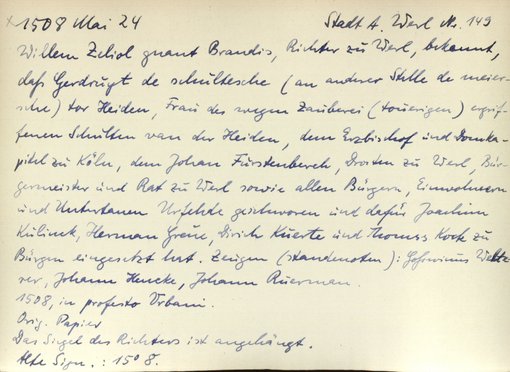 1508 Mai 24 Stadt A. Werl Nr. 149
Willem Zeliol gnant Brandis, Richter zu Werl, bekennt,
daß Gerdrugt de schultesche (an anderer Stelle de meier-
sche) tor Heiden, Frau des wegen Zauberei (touerigen) ergrif-
fenen Schulten van der Heiden, dem Erzbischof und Domka-
pitel zu Köln, dem Johan Fürstenberch, Drosten zu Werl, Bür-
germeister und Rat zu Werl sowie allen Bürgern, Einwohnern
und Untertanen Urfehde geschworen und dafür Joachim
Hermann Greue, Dirich Kuerte und Thomas Kock zu
Bürgen eingesetzt hat. Zeugen (standenoten): Gosswinus
Johann Hencke, Johann Ruerman.
1508, in profesto Urbani.
Orig. Papier
Das Siegel des Richters ist angehängt.
Alte Sign.: 150 8.